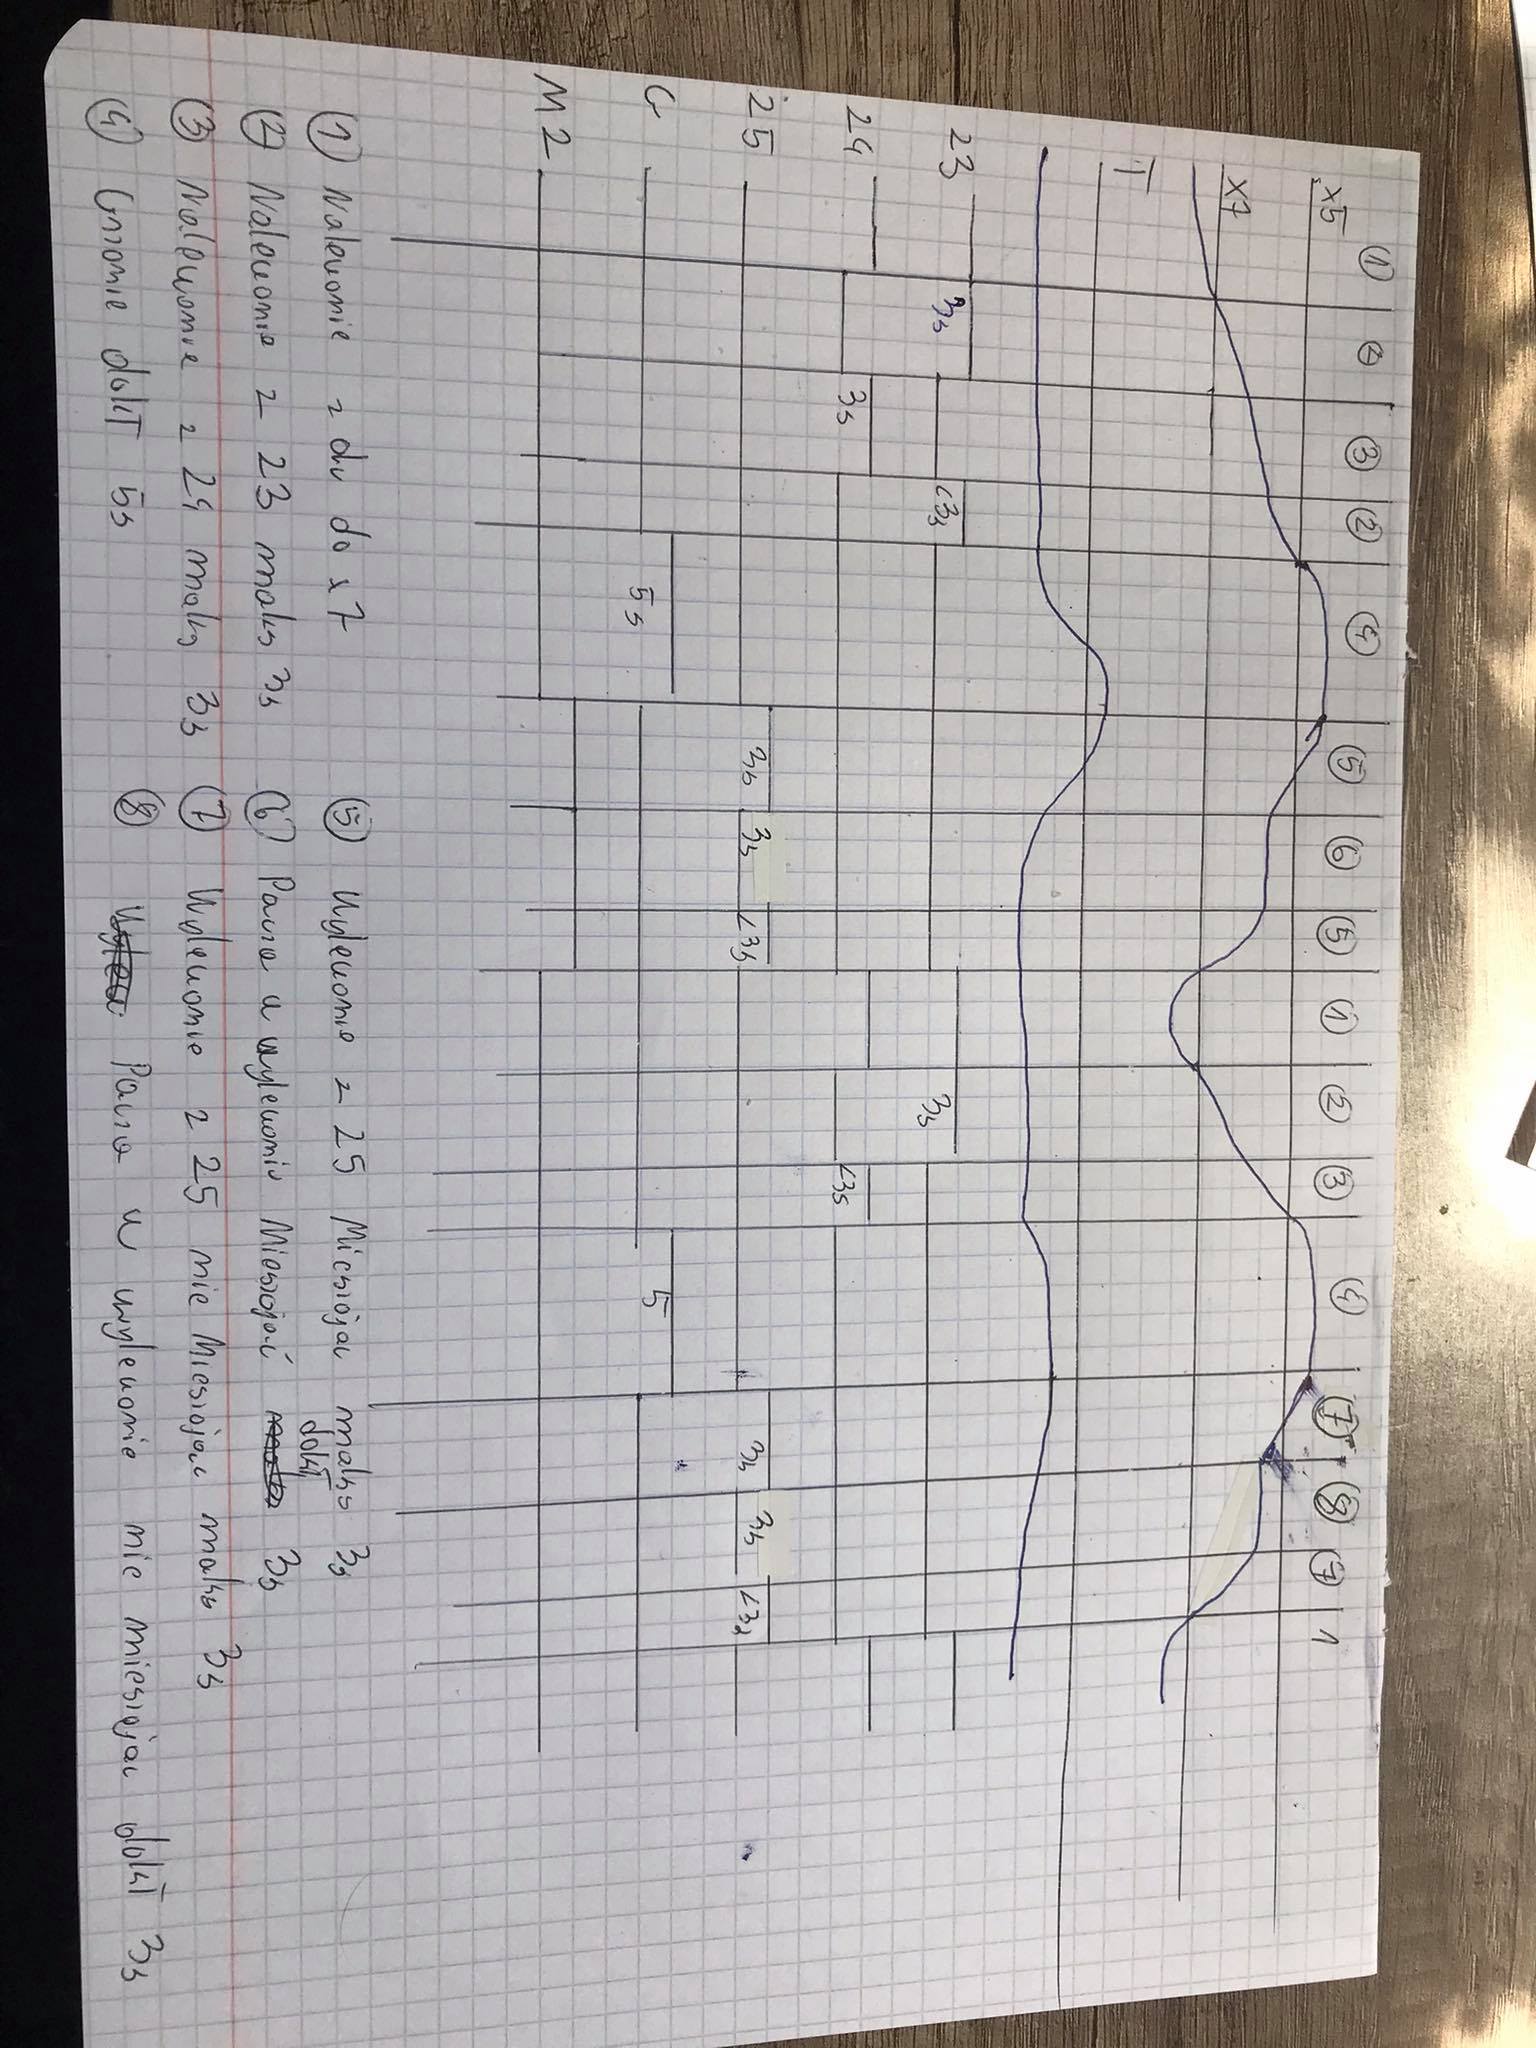 ① ② ③ ② ④ ⑤ ⑥ ⑤ ① ② ③ ④ ⑦ ⑧ ⑦ 1
x5
x7
T
23 3s <3s 3s
24 3s <3s
25 3s 3s <3s 3s 3s <3s
G 5s 5
M2
① Nalewanie z du do x7
② Nalewanie z 23 maks 3s
③ Nalewanie z 24 maks 3s
④ Grzanie dokł 5s
⑤ Wylewanie z 25 Mieszając maks 3s
dokł
⑥ Pauza w wylewaniu Mieszając maks 3s
⑦ Wylewanie z 25 nie Mieszając maks 3s
⑧ Wylew Pauza w wylewanie nie mieszając dokł 3s